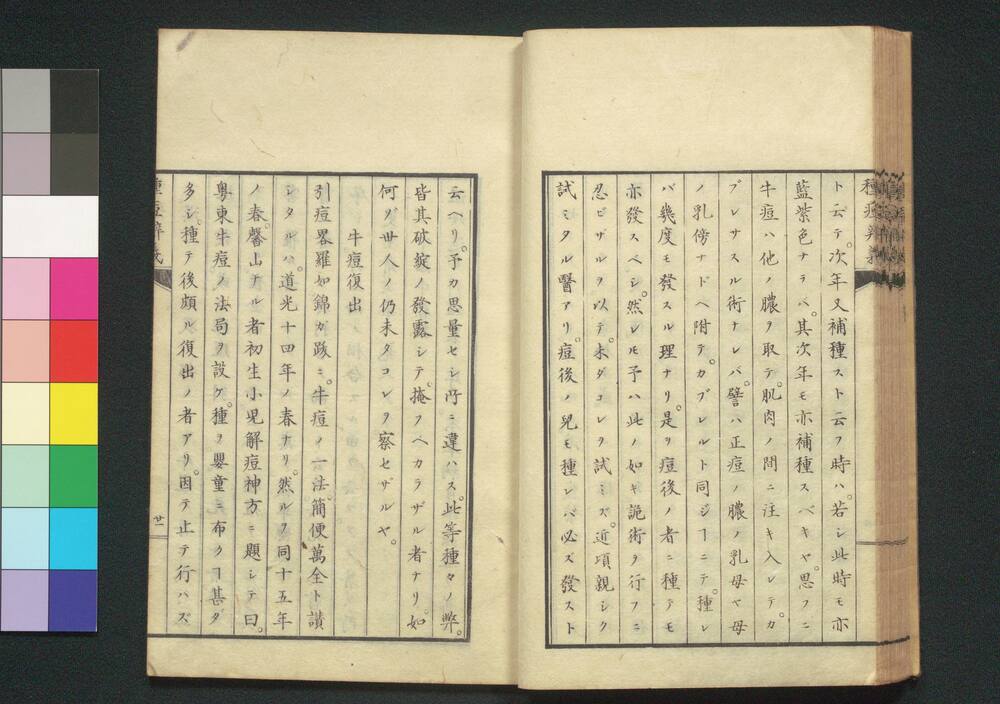 ト云テ。次年又補種スト云フ時ハ。若シ此時モ亦
藍紫色ナラバ。其次年モ亦補種スベキヤ。思フニ
牛痘ハ他ノ膿ヲ取テ。肌肉ノ間ニ注キ入レテ。カ
ブレサスル術ナレバ。譬ハ正痘ノ膿ノ乳母ヤ母
ノ乳傍ナドヘ附テ。カブレルト同ジヿニテ。種レ
バ幾度モ發スル理ナリ。是ヲ痘後ノ者ニ種テモ
亦發スベシ。然レ𪜈予ハ此ノ如キ詭術ヲ行フニ
忍ビザルヲ以テ。未ダコレヲ試ミズ。近頃親シク
試ミタル醫アリ。痘後ノ兒モ種レバ必ズ發スト
云ヘリ。予カ思量セシ所ニ違ハス。此等種々ノ弊。
皆其破綻ノ發露シテ。掩フヘカラザル者ナリ。如
何ソ世人ノ仍未タコレヲ察セザルヤ。
牛痘復出
引痘畧羅如錦ガ跋ニ。牛痘ノ一法。簡便萬全ト讃
シタルハ。道光十四年ノ春ナリ。然ルヲ同十五年
ノ春。馨山ナル者初生小兒解痘神方ニ題シテ曰。
粤東牛痘ノ法局ヲ設ケ。種ヲ嬰童ニ布クヿ甚ダ
多シ。種テ後頗ル復出ノ者アリ。因テ止テ行ハズ
廿一